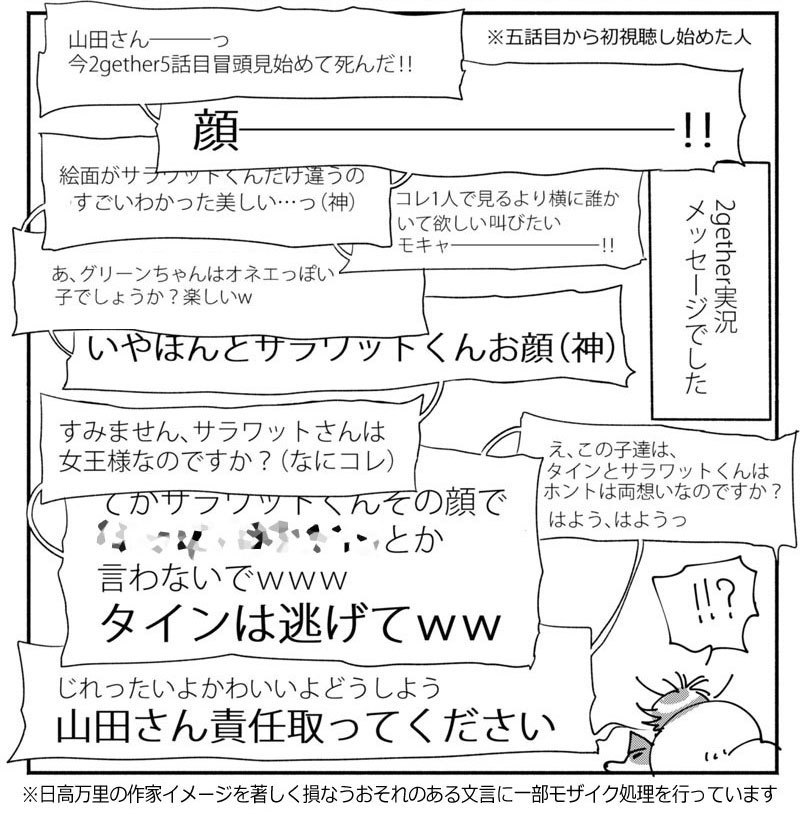 山田さん―――っ
今2gether5話目冒頭見始めて死んだ!!
※五話目から初視聴し始めた人
顔――――――――――――!!
絵面がサラワットくんだけ違うの
すごいわかった美しい…っ(神)
コレ1人で見るより横に誰か
いて欲しい叫びたい
モキャ――――――――!!
2gether実況
メッセージでした
あ、グリーンちゃんはオネエっぽい
子でしょうか?楽しいw
いやほんとサラワットくんお顔(神)
すみません、サラワットさんは
女王様なのですか?(なにコレ)
え、この子達は、
タインとサラワットくんは
ホントは両想いなのですか?
はよう、はようっ
てかサラワットくんその顔で
とか
言わないでwww
タインは逃げてww
!!?
じれったいよかわいいよどうしよう
山田さん責任取ってください
※日高万里の作家イメージを著しく損なうおそれのある文言に一部モザイク処理を行っています